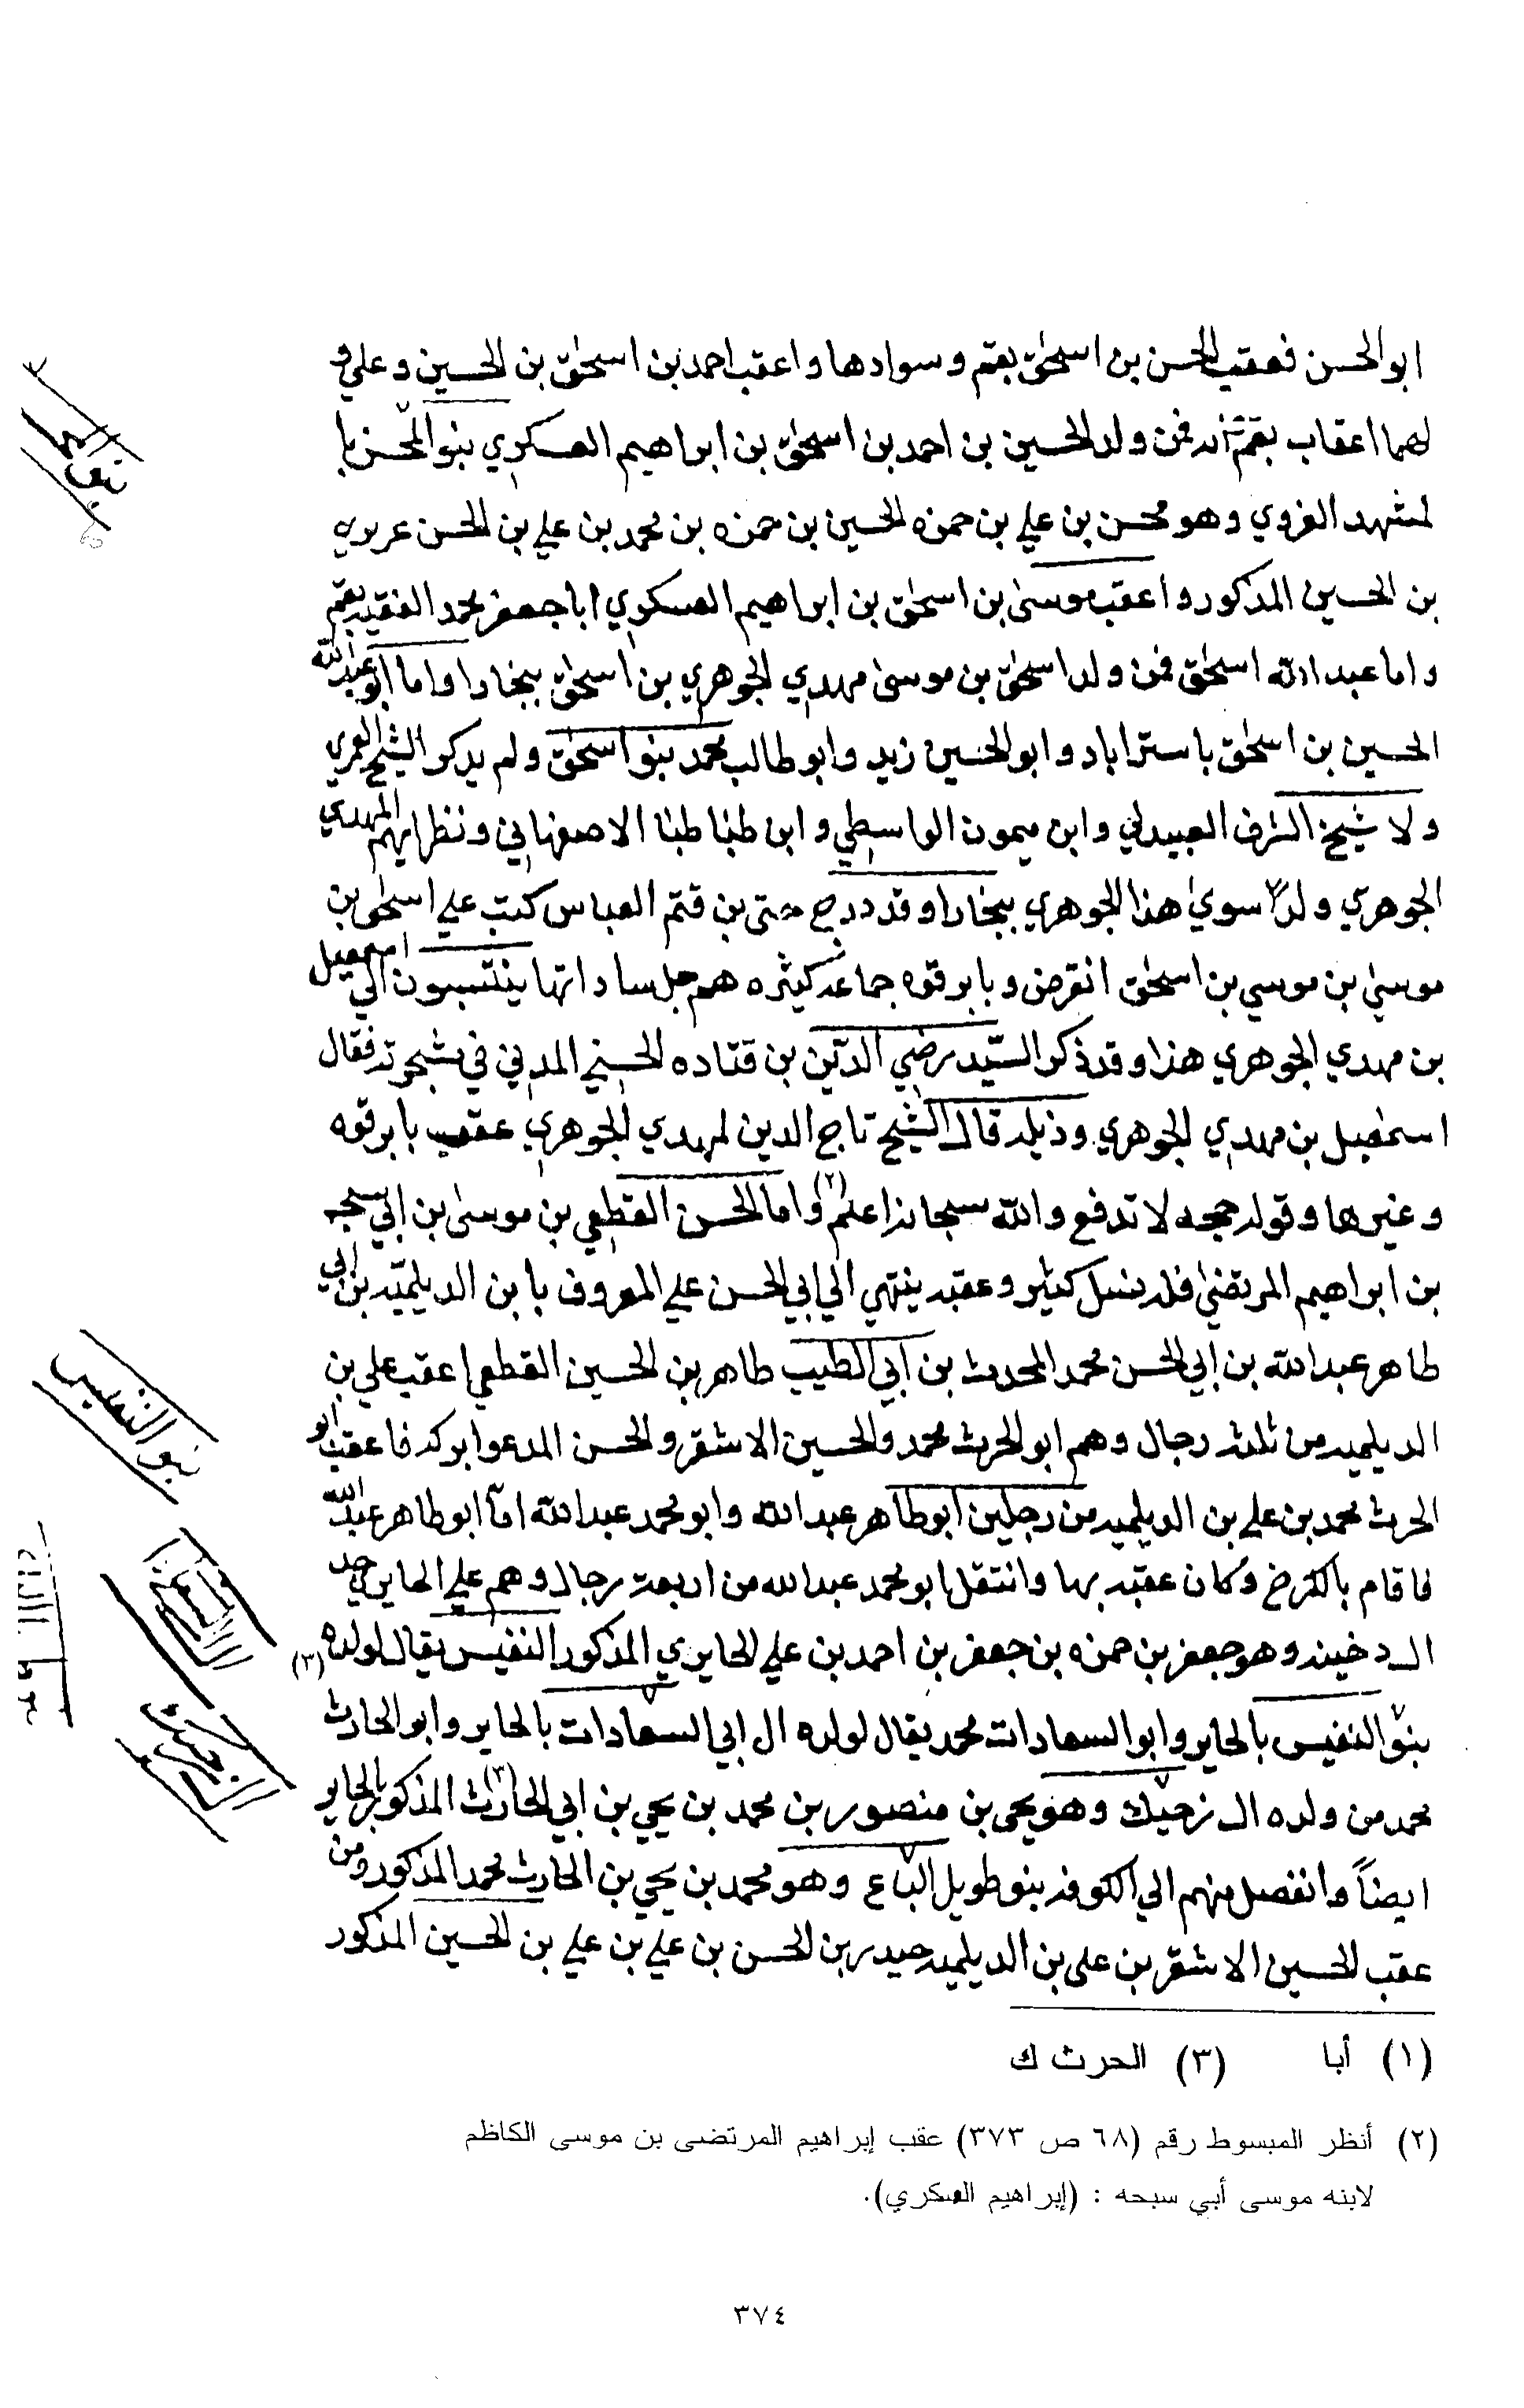 ابو الحسن فعقب الحسن بن اسحٰق بقم وسوادها واعقب احمد بن اسحٰق بن الحسين وعلي و
لهما اعقاب بقم فمن ولد الحسين بن احمد بن اسحٰق بن ابراهيم العسكري بنو المحسن با
لمشهد الغروي وهو محسن بن علي بن حمزه الحسين بن حمزه بن محمد بن علي بن الحسن
بن الحسين المذكور واعقب موسىٰ بن اسحٰق بن ابراهيم العسكري ابا جعفر محمد الفقيه بقم
واما عبد الله اسحٰق فمن ولد اسحٰق بن موسىٰ مهدي الجوهري بن اسحٰق ببخارا واما ابو عبد الله
الحسين بن اسحٰق باستراباد وابو الحسين زيد وابو طالب محمد بنو اسحٰق ولم يذكر الشيخ العمري
ولا شيخ الشرف العبيدلي وابن ميمون الواسطي وابن طبا طبا الاصفهاني ونظرايهم المهدي
الجوهري ولدًا سوىٰ هذا الجوهري ببخارا وقد درج قثم العباس كتب علي اسحٰق بن
موسىٰ بن موسي بن اسحٰق انقرض وبابرقوه جماعه كثيره هم جل ساداتها ينتسبون الي اسمعيل
بن مهدي الجوهري هذا وقد ذكر السّيد رضي الدّين بن قتاده الحسني المدني في مشجرته فقال
اسمٰعيل بن مهدي الجوهري وذيله قال الشيخ تاج الدين لمهدي الجوهري عقب بابرقوه
وغيرها وقوله حجه لا تدفع والله سبحانه اعلم (٢) واما الحسن القطعي بن موسىٰ بن ابي سبحه
بن ابراهيم المرتضىٰ فله نسل كثير وعقبه ينتهي الي ابي الحسن علي المعروف بابن الديلميّه بن ابي
طاهر عبد الله بن ابي الحسن محمد المحدث بن ابي الطيب طاهر بن الحسين القطعي اعقب علي بن
الديلميه من ثلثه رجال وهم ابو الحرث محمد والحسين الاشقر والحسن المدعوا بركه فاعقب ابو
الحرث محمد بن علي بن الديلميه من رجلين ابو طاهر عبد الله وابو محمد عبد الله امّا ابو طاهر عبد الله
فاقام بالكرخ وكان عقبه بها وانتقل ابو محمد عبد الله من اربعة رجال وهم علي الحايري جد
ال دخينه وهو جعفر بن حمزه بن جعفر بن احمد بن علي الحايري المذكور النفيس يقال لولده (٣)
بنو النفيس بالحاير وابو السعادات محمد يقال لولده ال ابي السعادات بالحاير وابو الحارث
محمد من ولده ال زحيك وهو يحيى بن منصور بن محمد بن يحيي بن ابي الحارث (٣) المذكور بالحاير
ايضاً وانفصل منهم الي الكوفه بنو طويل الباع وهو محمد بن يحيي بن الحارث محمد المذكور ومن
عقب الحسين الاشقر بن علي بن الديلميه حيدر بن الحسن بن علي بن علي بن الحسين المذكور
بنو النفيس
(١) أبا (٣) الحرث ك
(٢) أنظر المبسوط رقم (٦٨ ص ٣٧٣) عقب إبراهيم المرتضى بن موسى الكاظم
لابنه موسى أبي سبحه : (إبراهيم العسكري).
٣٧٤